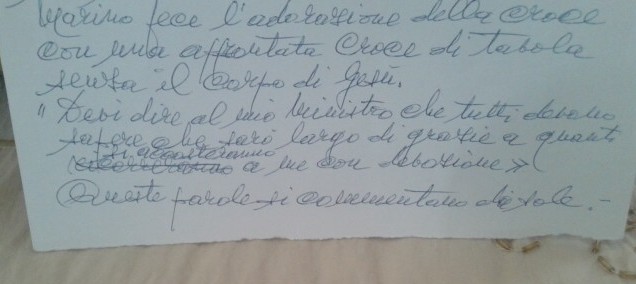 Marino fece l'adorazione della Croce
con una affrontata Croce di tabola
senza il Corpo di Gesù.
"Devi dire al mio Ministro che tutti devono
sapere che sarò largo di grazie a quanti
si accosteranno
a me con devozione»
Queste parole si commentano da sole.-